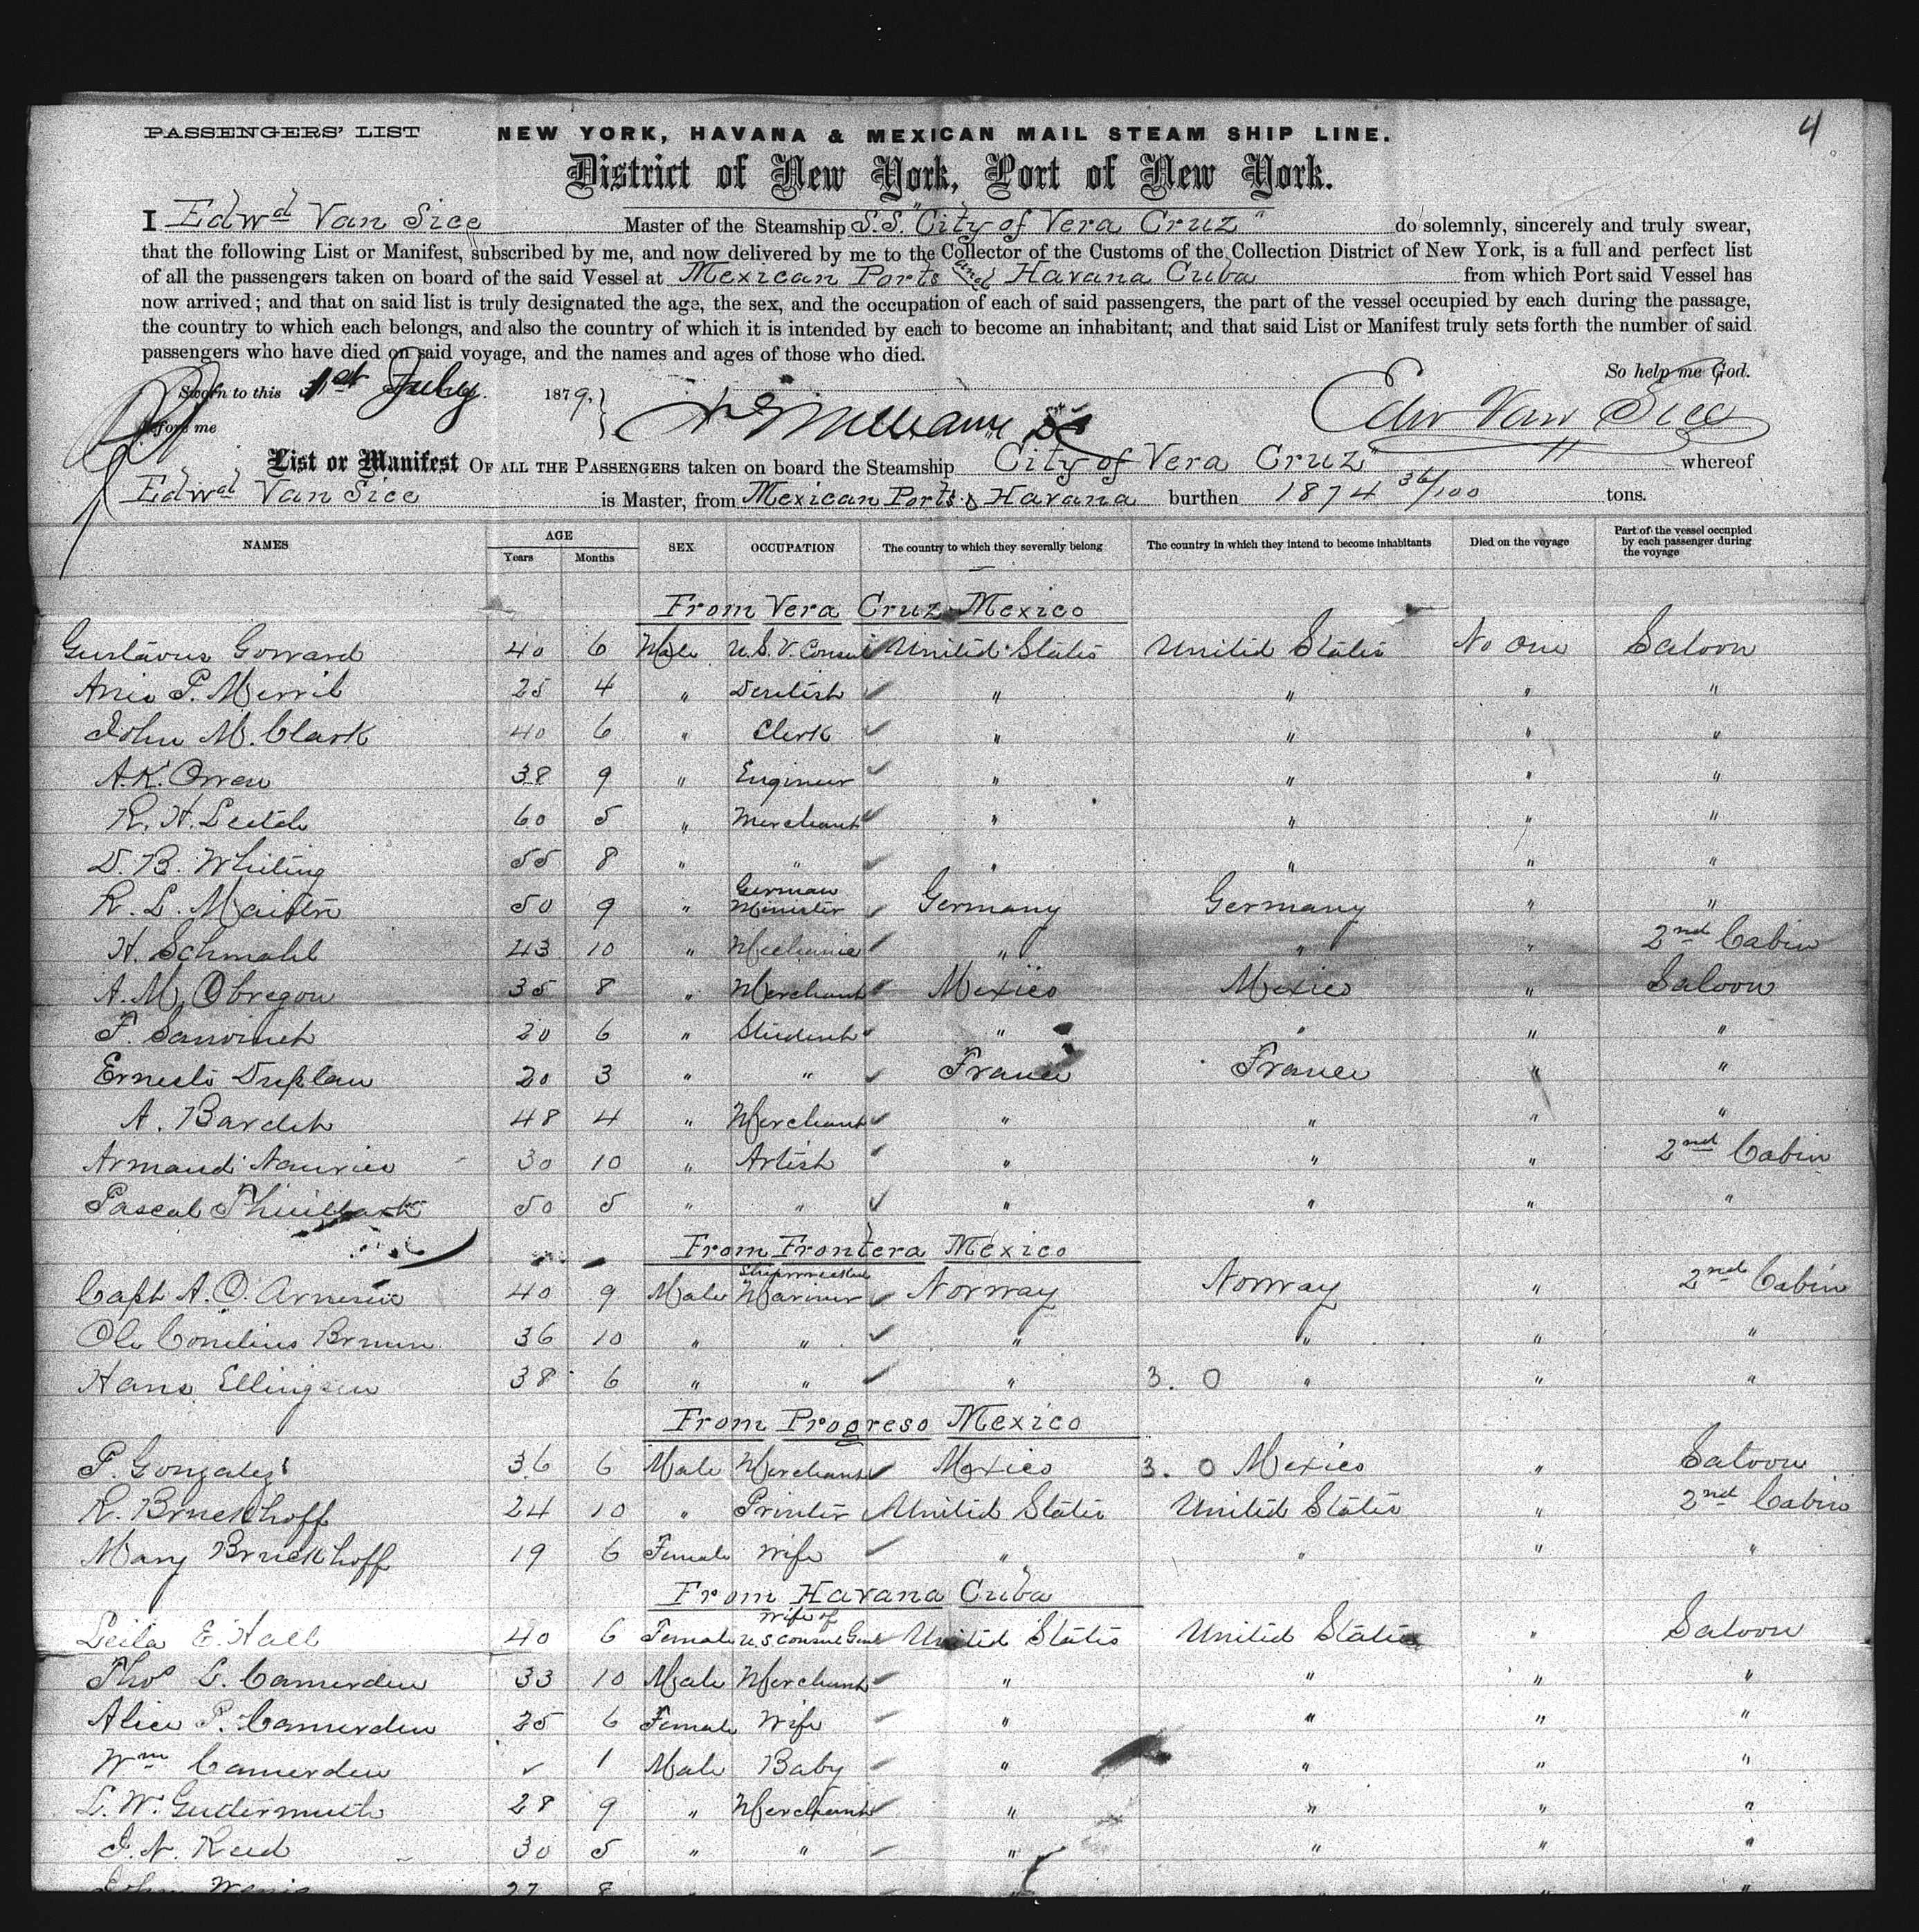 4
PASSENGERS' LIST NEW YORK, HAVANA & MEXICAN MAIL STEAM SHIP LINE.
District of New York, Port of New York.
I Edwd Van Sice Master of the Steamship S.S. "City of Vera Cruz" do solemnly, sincerely and truly swear,
that the following List or Manifest, subscribed by me, and now delivered by me to the Collector of the Customs of the Collection District of New York, is a full and perfect list
of all the passengers taken on board of the said Vessel at Mexican Ports and Havana Cuba from which Port said Vessel has
now arrived; and that on said list is truly designated the age, the sex, and the occupation of each of said passengers, the part of the vessel occupied by each during the passage,
the country to which each belongs, and also the country of which it is intended by each to become an inhabitant; and that said List or Manifest truly sets forth the number of said
passengers who have died on said voyage, and the names and ages of those who died.
So help me God.
Sworn to this 1st July 1879,
before me Edw Van Sice
List or Manifest OF ALL THE PASSENGERS taken on board the Steamship City of Vera Cruz" whereof
Edwd Van Sice is Master, from Mexican Ports & Havana burthen 1874 36/100 tons.
NAMES AGE Years Months SEX OCCUPATION The country to which they severally belong The country in which they intend to become inhabitants Died on the voyage Part of the vessel occupied by each passenger during the voyage
From Vera Cruz Mexico
Gustavus Goward 40 6 Male U.S.V. Consul United States United States No One Saloon
P. Merril 25 4 " Dentist " " " "
John M. Clark 40 6 " Clerk " " " "
A.K. Owen 38 9 " Engineer " " " "
R. H. Leitch 60 5 " Merchant " " " "
D. B. Whiting 55 8 " " " " " "
R. L. 50 9 " German Minister Germany Germany " "
H. Schmahl 43 10 " Mechanic " " " 2nd Cabin
A. M. Obregon 35 8 " Merchant Mexico Mexico " Saloon
F. 20 6 " Student " " " "
Ernesto Duplan 20 3 " " France France " "
A. Bardet 48 4 " Merchant " " " "
Armand 30 10 " Artist " " " 2nd Cabin
Pascal 50 5 " " " " " "
From Frontera Mexico
Capt A. O. Arnesen 40 9 Male Shipwrecked Mariner Norway Norway " 2nd Cabin
Ole Conelius Bruun 36 10 " " " " " "
Hans Ellingsen 38 6 " " " 3. 0 " " "
From Progreso Mexico
P. Gonzalez 36 6 Male Merchant Mexico 3. 0 Mexico " Saloon
R. Bruckhoff 24 10 " Printer United States United States " 2nd Cabin
Mary Bruckhoff 19 6 Female Wife " " " "
From Havana Cuba
Leila E. Hall 40 6 Female Wife of U.S Consul Genl United States United States " Saloon
Thos L. Camerden 33 10 Male Merchant " " " "
Alice P. Camerden 25 6 Female Wife " " " "
Wm Camerden 1 Male Baby " " " "
L. W. Gudermuth 28 9 " Merchant " " " "
J. N. Reed 30 5 " " " " " "
John 27 8